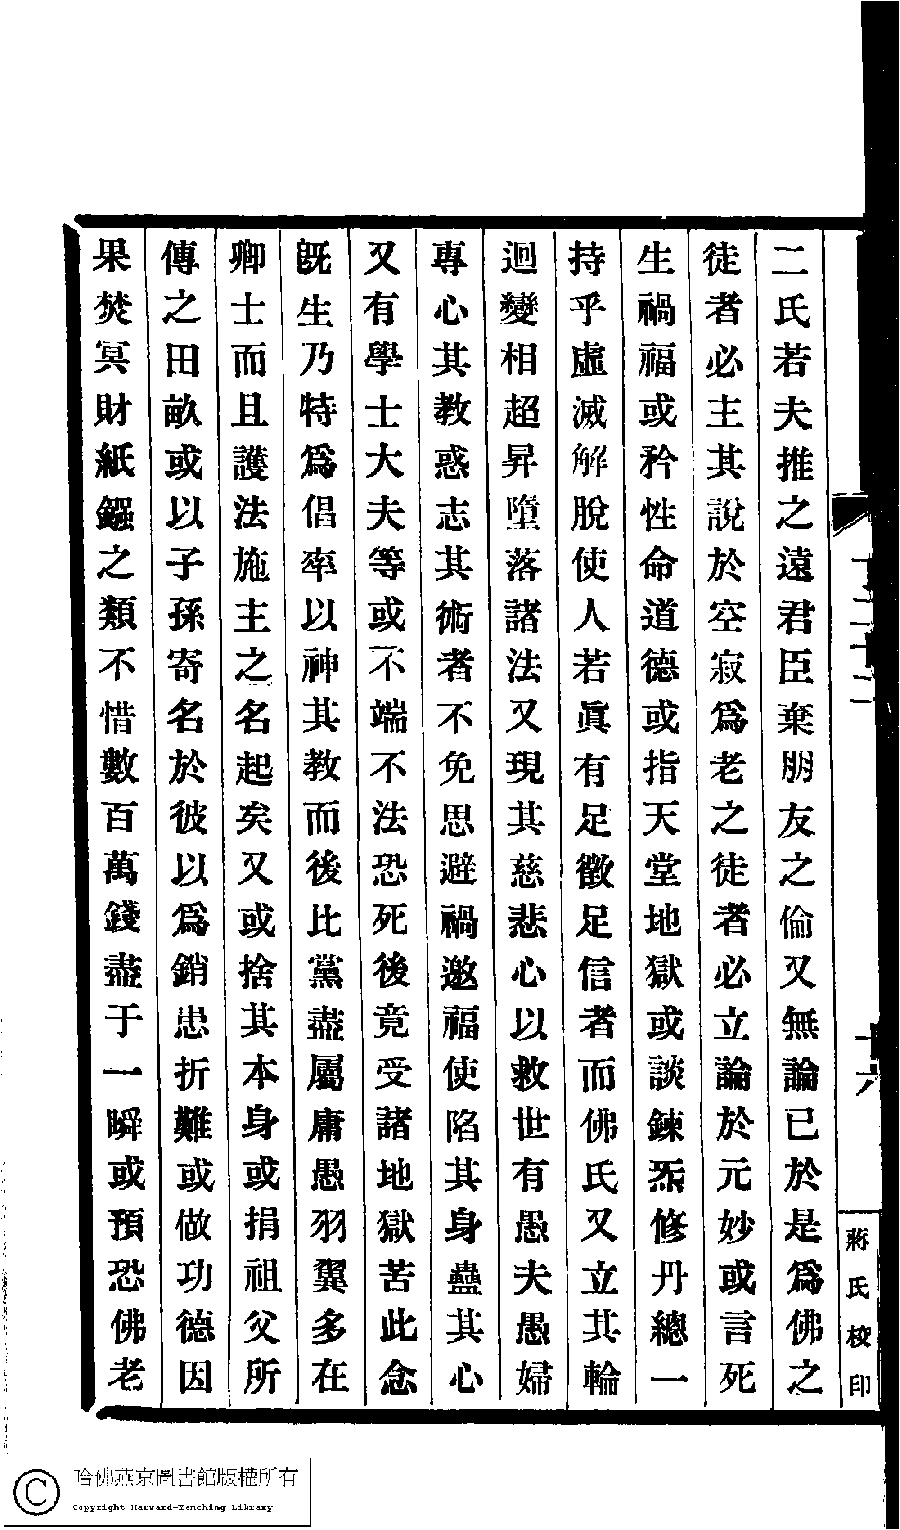 二氏若夫推之遠君臣棄朋友之倫又無論已於是爲佛之
徒者必主其說於空寂爲老之徒者必立論於元妙或言死
生禍福或矜性命道德或指天堂地獄或談鍊炁修丹總一
持乎虛滅解脫使人若眞有足徵足信者而佛氏又立其輪
迴變相超昇墮落諸法又現其慈悲心以救世有愚夫愚婦
專心其教惑志其術者不免思避禍邀福使陷其身蠱其心
又有學士大夫等或不端不法恐死後竟受諸地獄苦此念
旣生乃特爲倡率以神其教而後比黨盡屬庸愚羽翼多在
卿士而且護法施主之名起矣又或捨其本身或捐祖父所
傳之田畝或以子孫寄名於彼以爲銷患折難或做功德因
果焚冥財紙鏹之類不惜數百萬錢盡于一瞬或預恐佛老
十六
蔣氏校印
哈佛燕京圖書館版權所有
Copyright Harvard-Yenching Library